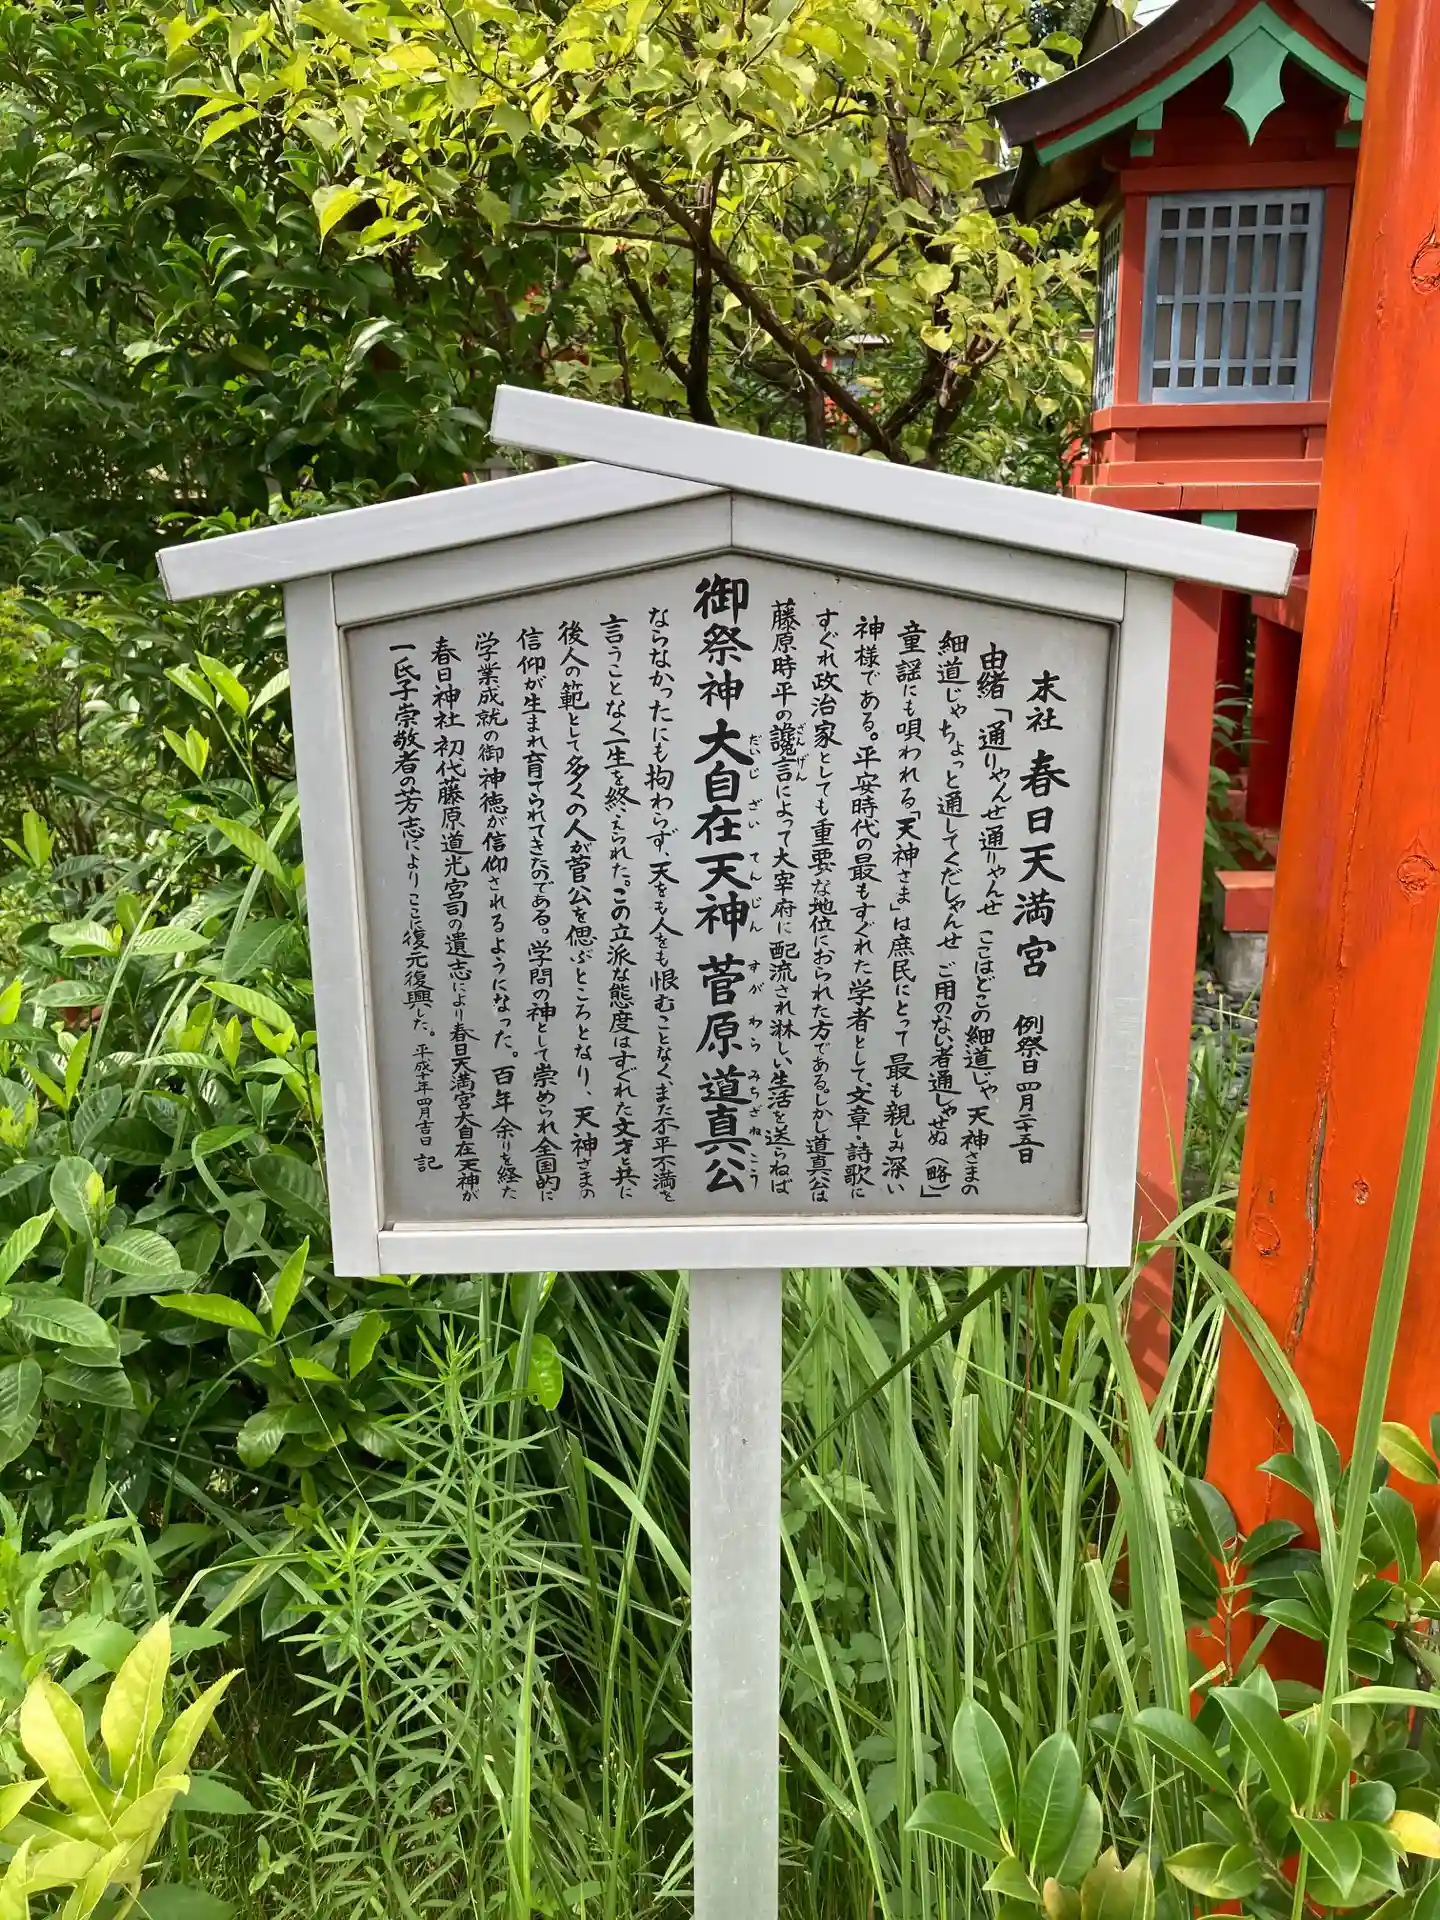 末社 春日天満宮 例祭日 四月二十五日
由緒「通りゃんせ通りゃんせ ここはどこの細道じゃ 天神さまの
細道じゃ ちょっと通してくだしゃんせ ご用のない者通しゃせぬ(略)」
童謡にも唄われる「天神さま」は庶民にとって最も親しみ深い
神様である。平安時代の最もすぐれた学者として、文章・詩歌に
すぐれ政治家としても重要な地位におられた方である。しかし道真公は
藤原時平の讒言によって大宰府に配流され淋しい生活を送らねば
ざんげん
御祭神 大自在天神 菅原道真公
だいじざいてんじん すがわらみちざねこう
ならなかったにも拘わらず、天をも人をも恨むことなく、また不平不満を
言うことなく一生を終えられた。この立派な態度はすぐれた文才と共に
後人の範として多くの人が菅公を偲ぶところとなり、天神さまの
信仰が生まれ育てられてきたのである。学問の神として崇められ全国的に
学業成就の御神徳が信仰されるようになった。百年余りを経た
春日神社 初代藤原道光宮司の遺志により春日天満宮大自在天神が
一氏子崇敬者の芳志によりここに復元復興した。 平成十年四月吉日 記